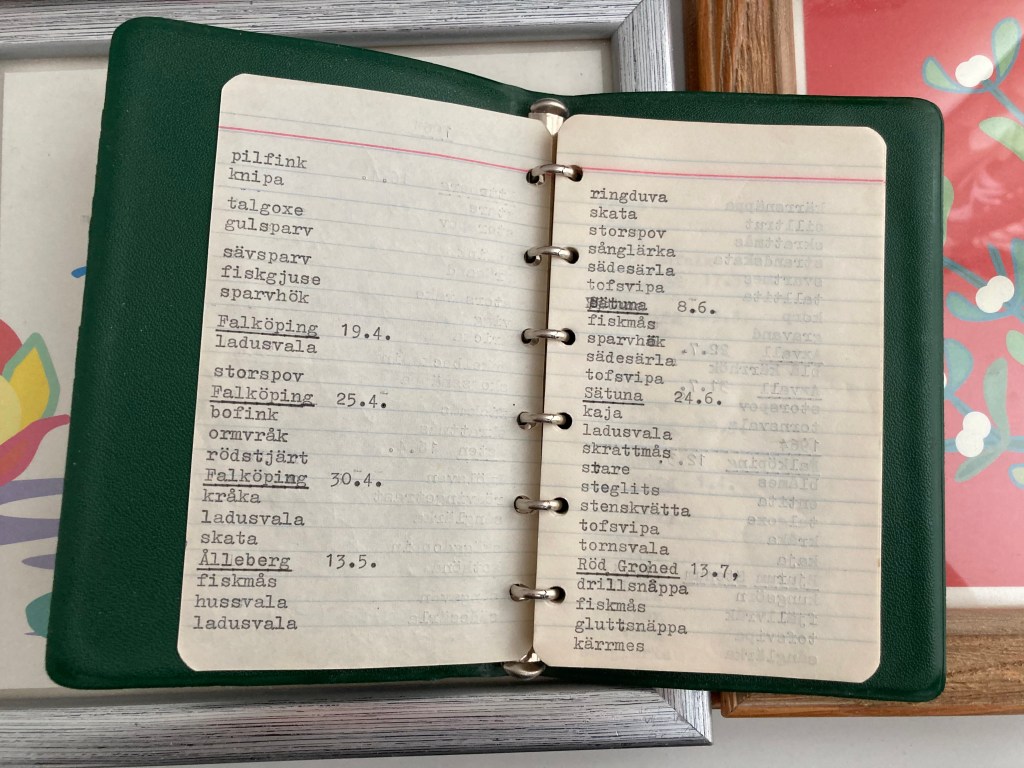 pilfink
knipa
talgoxe
gulsparv
sävsparv
fiskgjuse
sparvhök
Falköping 19.4.
ladusvala
storspov
Falköping 25.4.
bofink
ormvråk
rödstjärt
Falköping 30.4.
kråka
ladusvala
skata
Ålleberg 13.5.
fiskmås
hussvala
ladusvala
ringduva
skata
storspov
sånglärka
sädesärla
tofsvipa
Sätuna 8.6.
fiskmås
sparvhök
sädesärla
tofsvipa
Sätuna 24.6.
kaja
ladusvala
skrattmås
stare
steglits
stenskvätta
tofsvipa
tornsvala
Röd Grohed 13.7,
drillsnäppa
fiskmås
gluttsnäppa
kärrmes